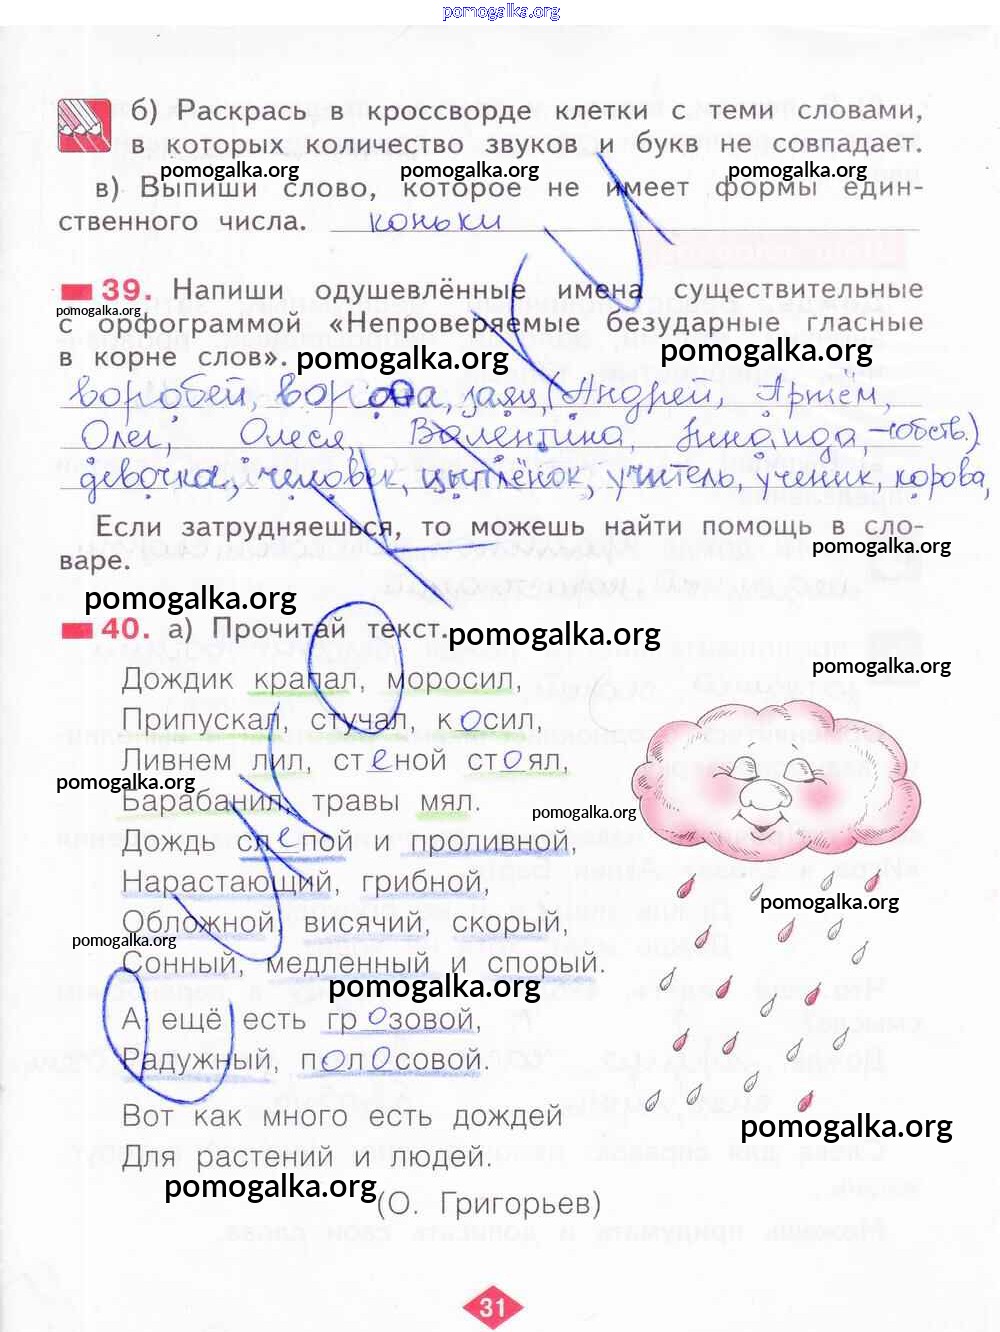 pomogalka.org
б) Раскрась в кроссворде клетки с теми словами,
в которых количество звуков и букв не совпадает.
pomogalka.org pomogalka.org pomogalka.org
в) Выпиши слово, которое не имеет формы един-
ственного числа. коньки
39. Напиши одушевлённые имена существительные
pomogalka.org
с орфограммой «Непроверяемые безударные гласные
в корне слов».
pomogalka.org pomogalka.org
воробей, ворона, заяц, (Андрей, Артём,
Олег, Олеся, Валентина, Зинаида -собств.)
девочка, человек, цыплёнок, учитель, ученик, корова,
Если затрудняешься, то можешь найти помощь в сло-
варе.
pomogalka.org
pomogalka.org
40. а) Прочитай текст.
pomogalka.org
pomogalka.org
Дождик крапал, моросил,
Припускал, стучал, косил,
Ливнем лил, стеной стоял,
pomogalka.org
Барабанил, травы мял.
pomogalka.org
Дождь слепой и проливной,
Нарастающий, грибной,
pomogalka.org
Обложной, висячий, скорый,
pomogalka.org
Сонный, медленный и спорый.
pomogalka.org
А ещё есть грозовой,
Радужный, полосовой.
Вот как много есть дождей
pomogalka.org
Для растений и людей.
pomogalka.org
(О. Григорьев)
31
ОЦЕНОК.КИ